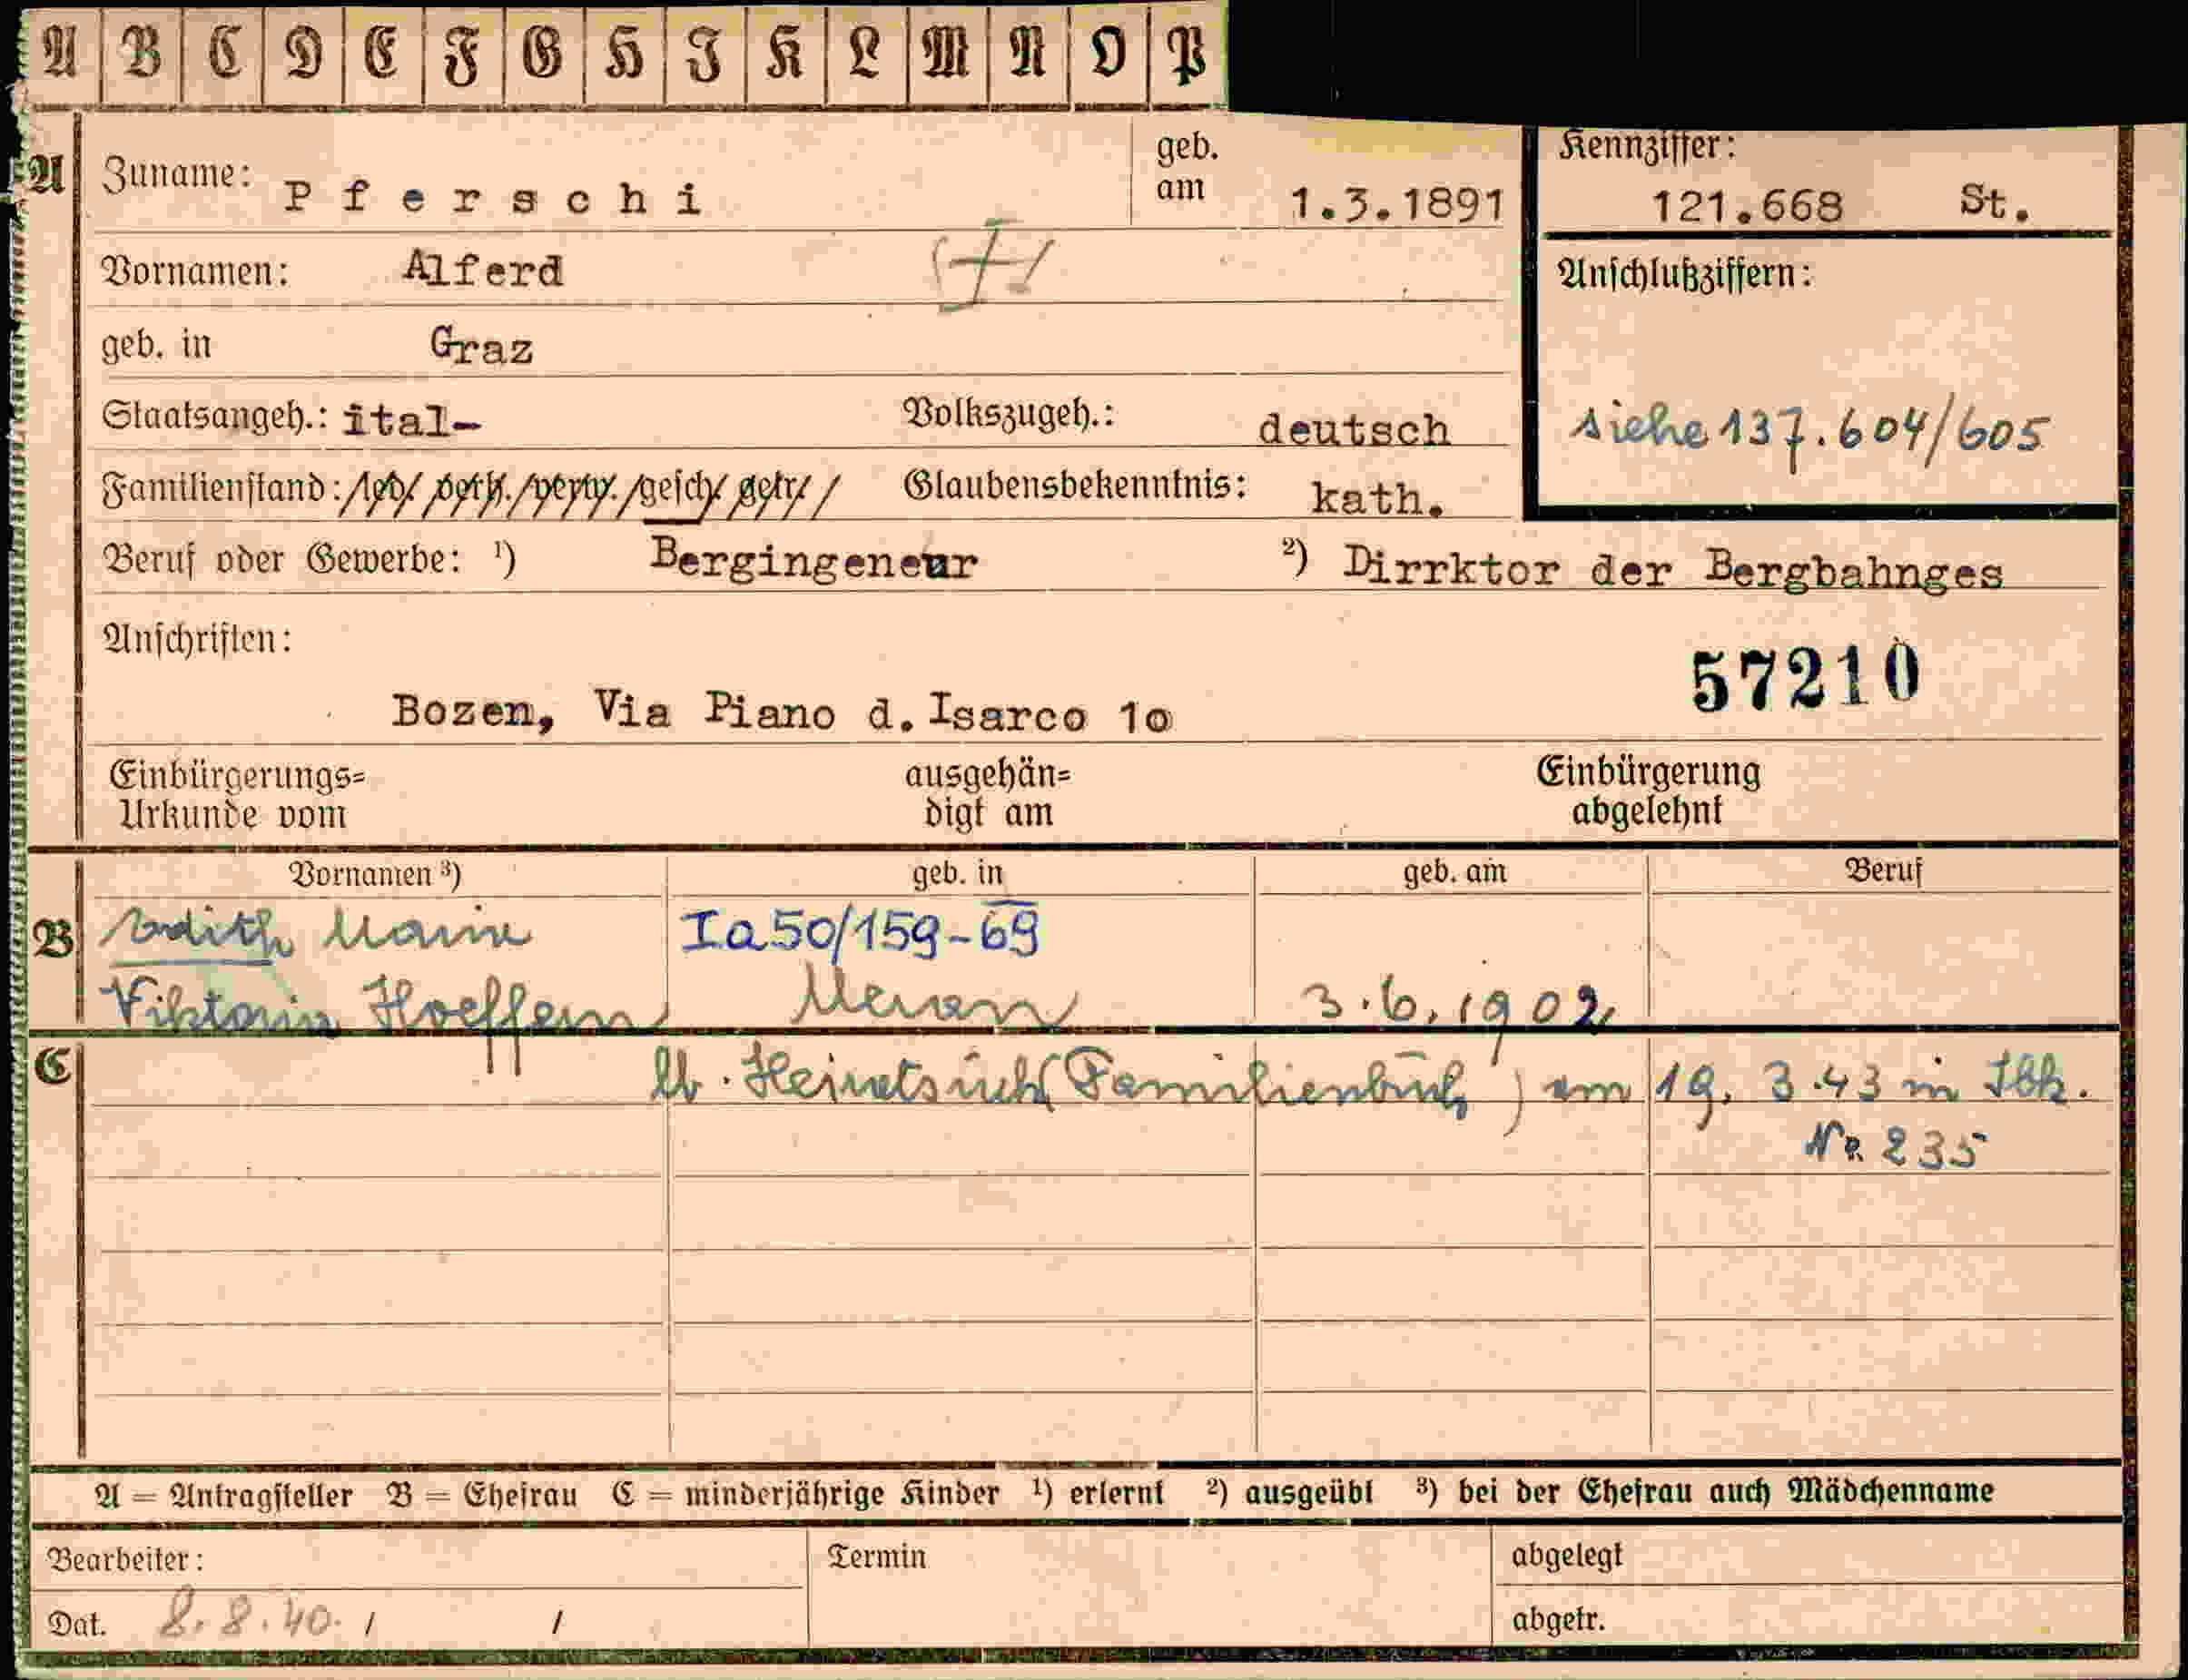 A B C D E F G H I K L M N O P
A Zuname: Pferschi geb. am 1.3.1891 Kennziffer: 121.668 St.
Vornamen: Alferd Anschlußziffern:
geb. in Graz
Staatsangeh.: ital- Volkszugeh.: deutsch siehe 137.604/605
Familienstand: led/ verh./verw./gesch/ getr/ Glaubensbekenntnis: kath.
Beruf oder Gewerbe: ¹) Bergingeneur ²) Dirrktor der Bergbahnges
Anschriften: 57210
Bozen, Via Piano d. Isarco 1o
Einbürgerungs= ausgehän= Einbürgerung
Urkunde vom digt am abgelehnt
Vornamen ³) geb. in geb. am Beruf
B Edith Maria Ia50/159-69
Viktoria Hoeffern Meran 3.6.1902
C Heiratsurk (Familienbuch) am 19. 3.43 in Ibk.
Nr. 235
A = Antragsteller B = Ehefrau C = minderjährige Kinder ¹) erlernt ²) ausgeübt ³) bei der Ehefrau auch Mädchenname
Bearbeiter: Termin abgelegt
Dat. 8.8.40. / / abgetr.